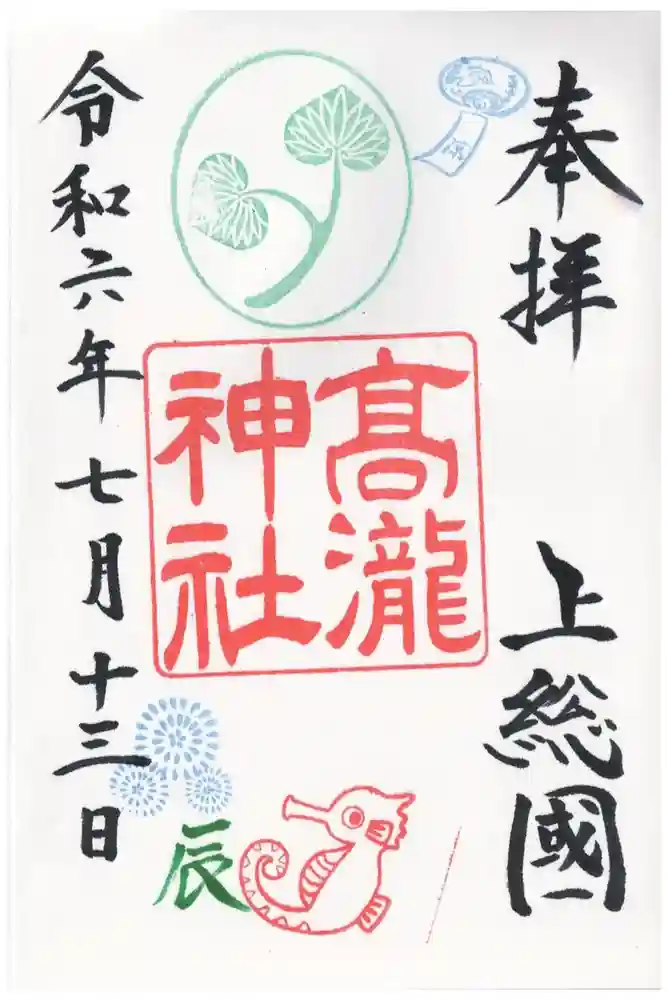 奉拝　上総國
髙瀧
神社
令和六年七月十三日
辰